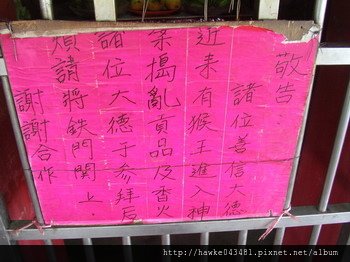 敬告：
諸位善信大德
近来有猴王進入神
桌搗亂貢品及香火
諸位大德于参拜后
煩請將鉄門関上．
謝謝合作
http://hawke043481.pixnet.net/album